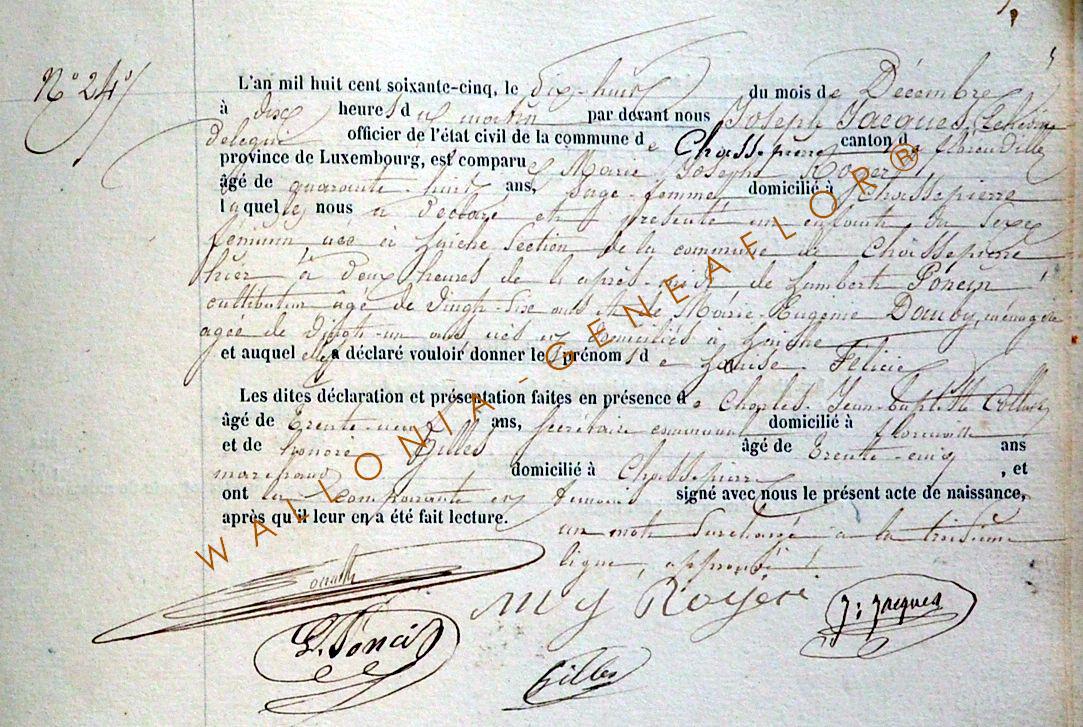 N° 24
L'an mil huit cent soixante-cinq, le dix-huit du mois de Décembre
à dix heures du matin par devant nous Joseph Jacques, Echevin
délégué officier de l'état civil de la commune de Chassepierre canton de Florenville
province de Luxembourg, est comparu Marie Josephe Royer
âgé de quarante huit ans, sage-femme, domicilié à Chassepierre
laquelle nous a déclaré et présenté un enfant du sexe
féminin, née à Laiche section de la commune de Chassepierre
hier à deux heures de l'après-midi de Lambert Poncin
cultivateur âgé de vingt-six ans et de Marie-Eugénie Dauby, ménagère
agée de vingt-un ans domiciliés à Laiche
et auquel elle a déclaré vouloir donner les prénoms de Louise Félicie
Les dites déclaration et présentation faites en présence de Charles Jean-Baptiste
âgé de Trente-neuf ans, secrétaire communal domicilié à Florenville
et de honoré Gilles âgé de trente-cinq ans
marechand domicilié à Chassepierre, et
ont la comparante et témoins signé avec nous le présent acte de naissance,
après qu'il leur en a été fait lecture.
un mot surchargé à la troisième
ligne, approuvé
M J Royer
J: Jacques
L. Poncin
Gilles
WALLONIA-GENEAFLOR®